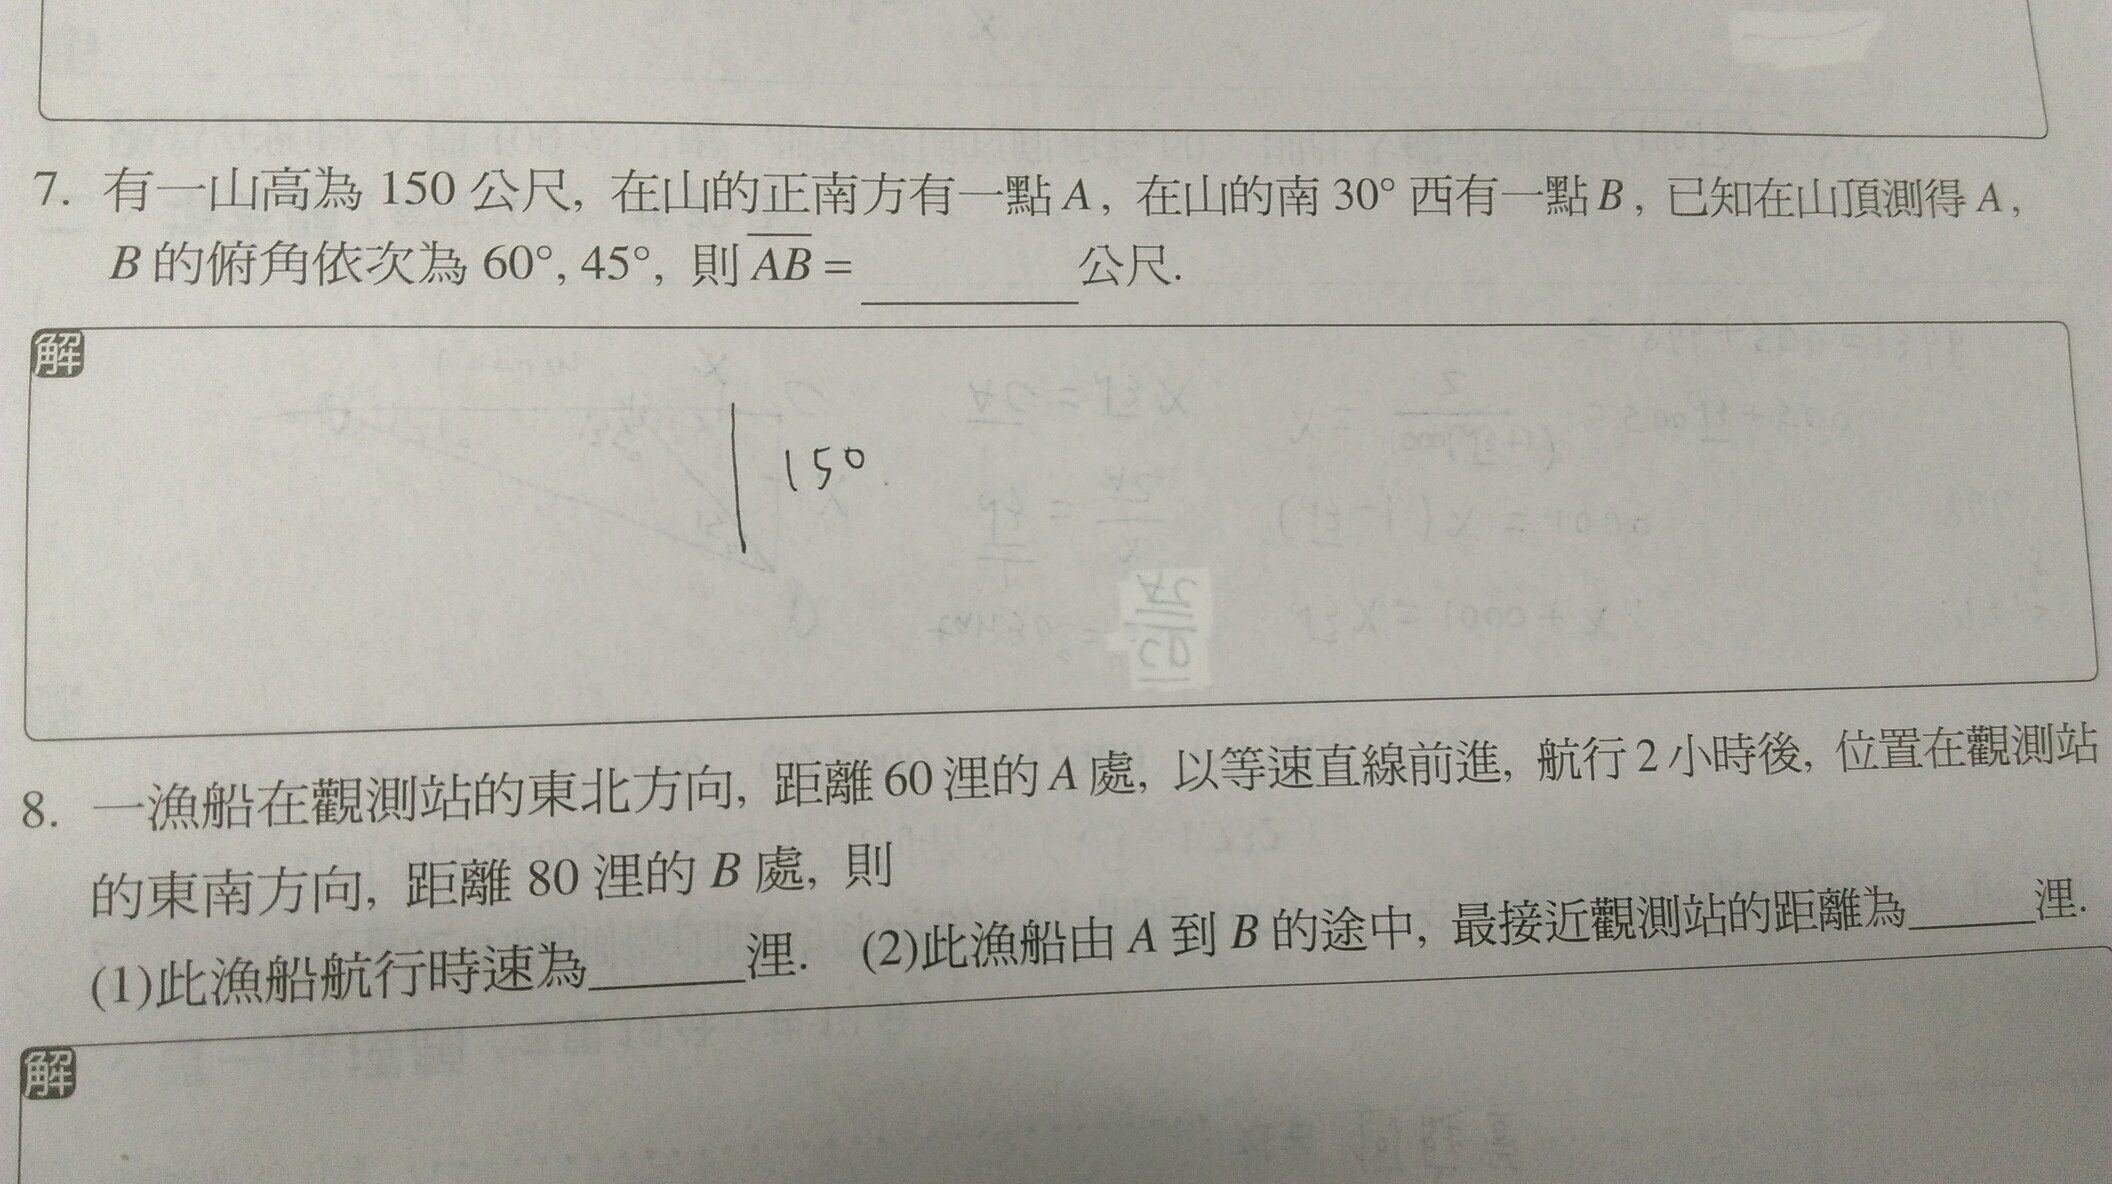 7. 有一山高為 150 公尺, 在山的正南方有一點 A, 在山的南 30° 西有一點 B, 已知在山頂測得 A,
B 的俯角依次為 60°, 45°, 則 AB = ______ 公尺.
解
150
8. 一漁船在觀測站的東北方向, 距離 60 浬的 A 處, 以等速直線前進, 航行 2 小時後, 位置在觀測站
的東南方向, 距離 80 浬的 B 處, 則
(1)此漁船航行時速為______浬. (2)此漁船由 A 到 B 的途中, 最接近觀測站的距離為______浬.
解